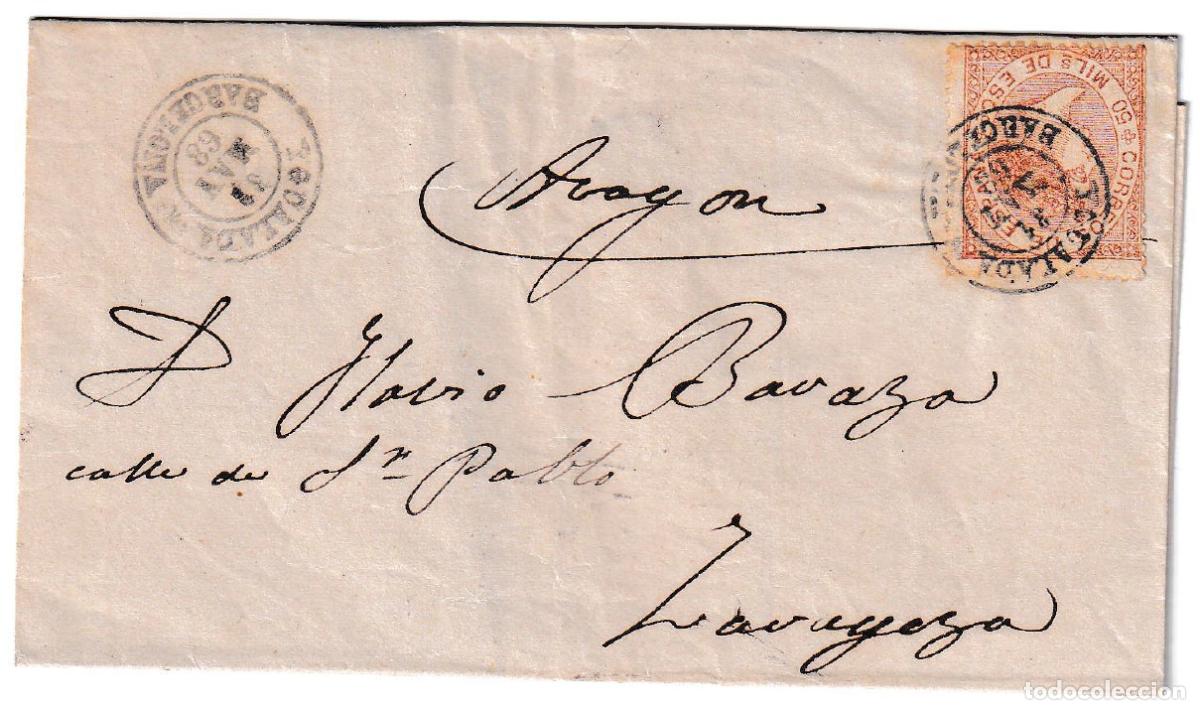 Aragon
D Flavio Bavaza
calle de Sn Pablo
Zaragoza
CORREOS
50 MILS DE ESC
IGUALADA
BARCELONA
MAY
68
IGUALADA
BARCELONA
todocoleccion